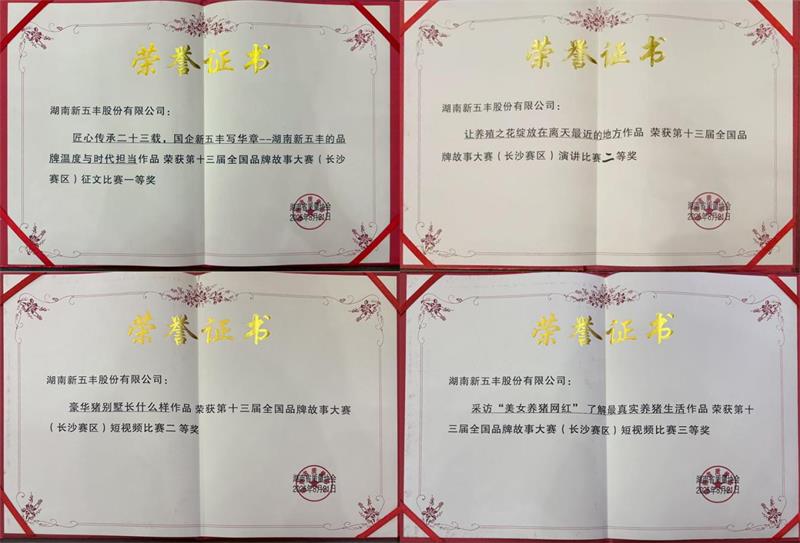 荣誉证书
湖南新五丰股份有限公司：
匠心传承二十三载，国企新五丰写华章--湖南新五丰的品
牌温度与时代担当作品 荣获第十三届全国品牌故事大赛（长沙
赛区）征文比赛一等奖
荣誉证书
湖南新五丰股份有限公司：
让养殖之花绽放在离天最近的地方作品 荣获第十三届全国品
牌故事大赛（长沙赛区）演讲比赛二等奖
荣誉证书
湖南新五丰股份有限公司：
豪华猪别墅长什么样作品 荣获第十三届全国品牌故事大赛
（长沙赛区）短视频比赛二等奖
荣誉证书
湖南新五丰股份有限公司：
采访“美女养猪网红”了解最真实养猪生活作品 荣获第十
三届全国品牌故事大赛（长沙赛区）短视频比赛三等奖